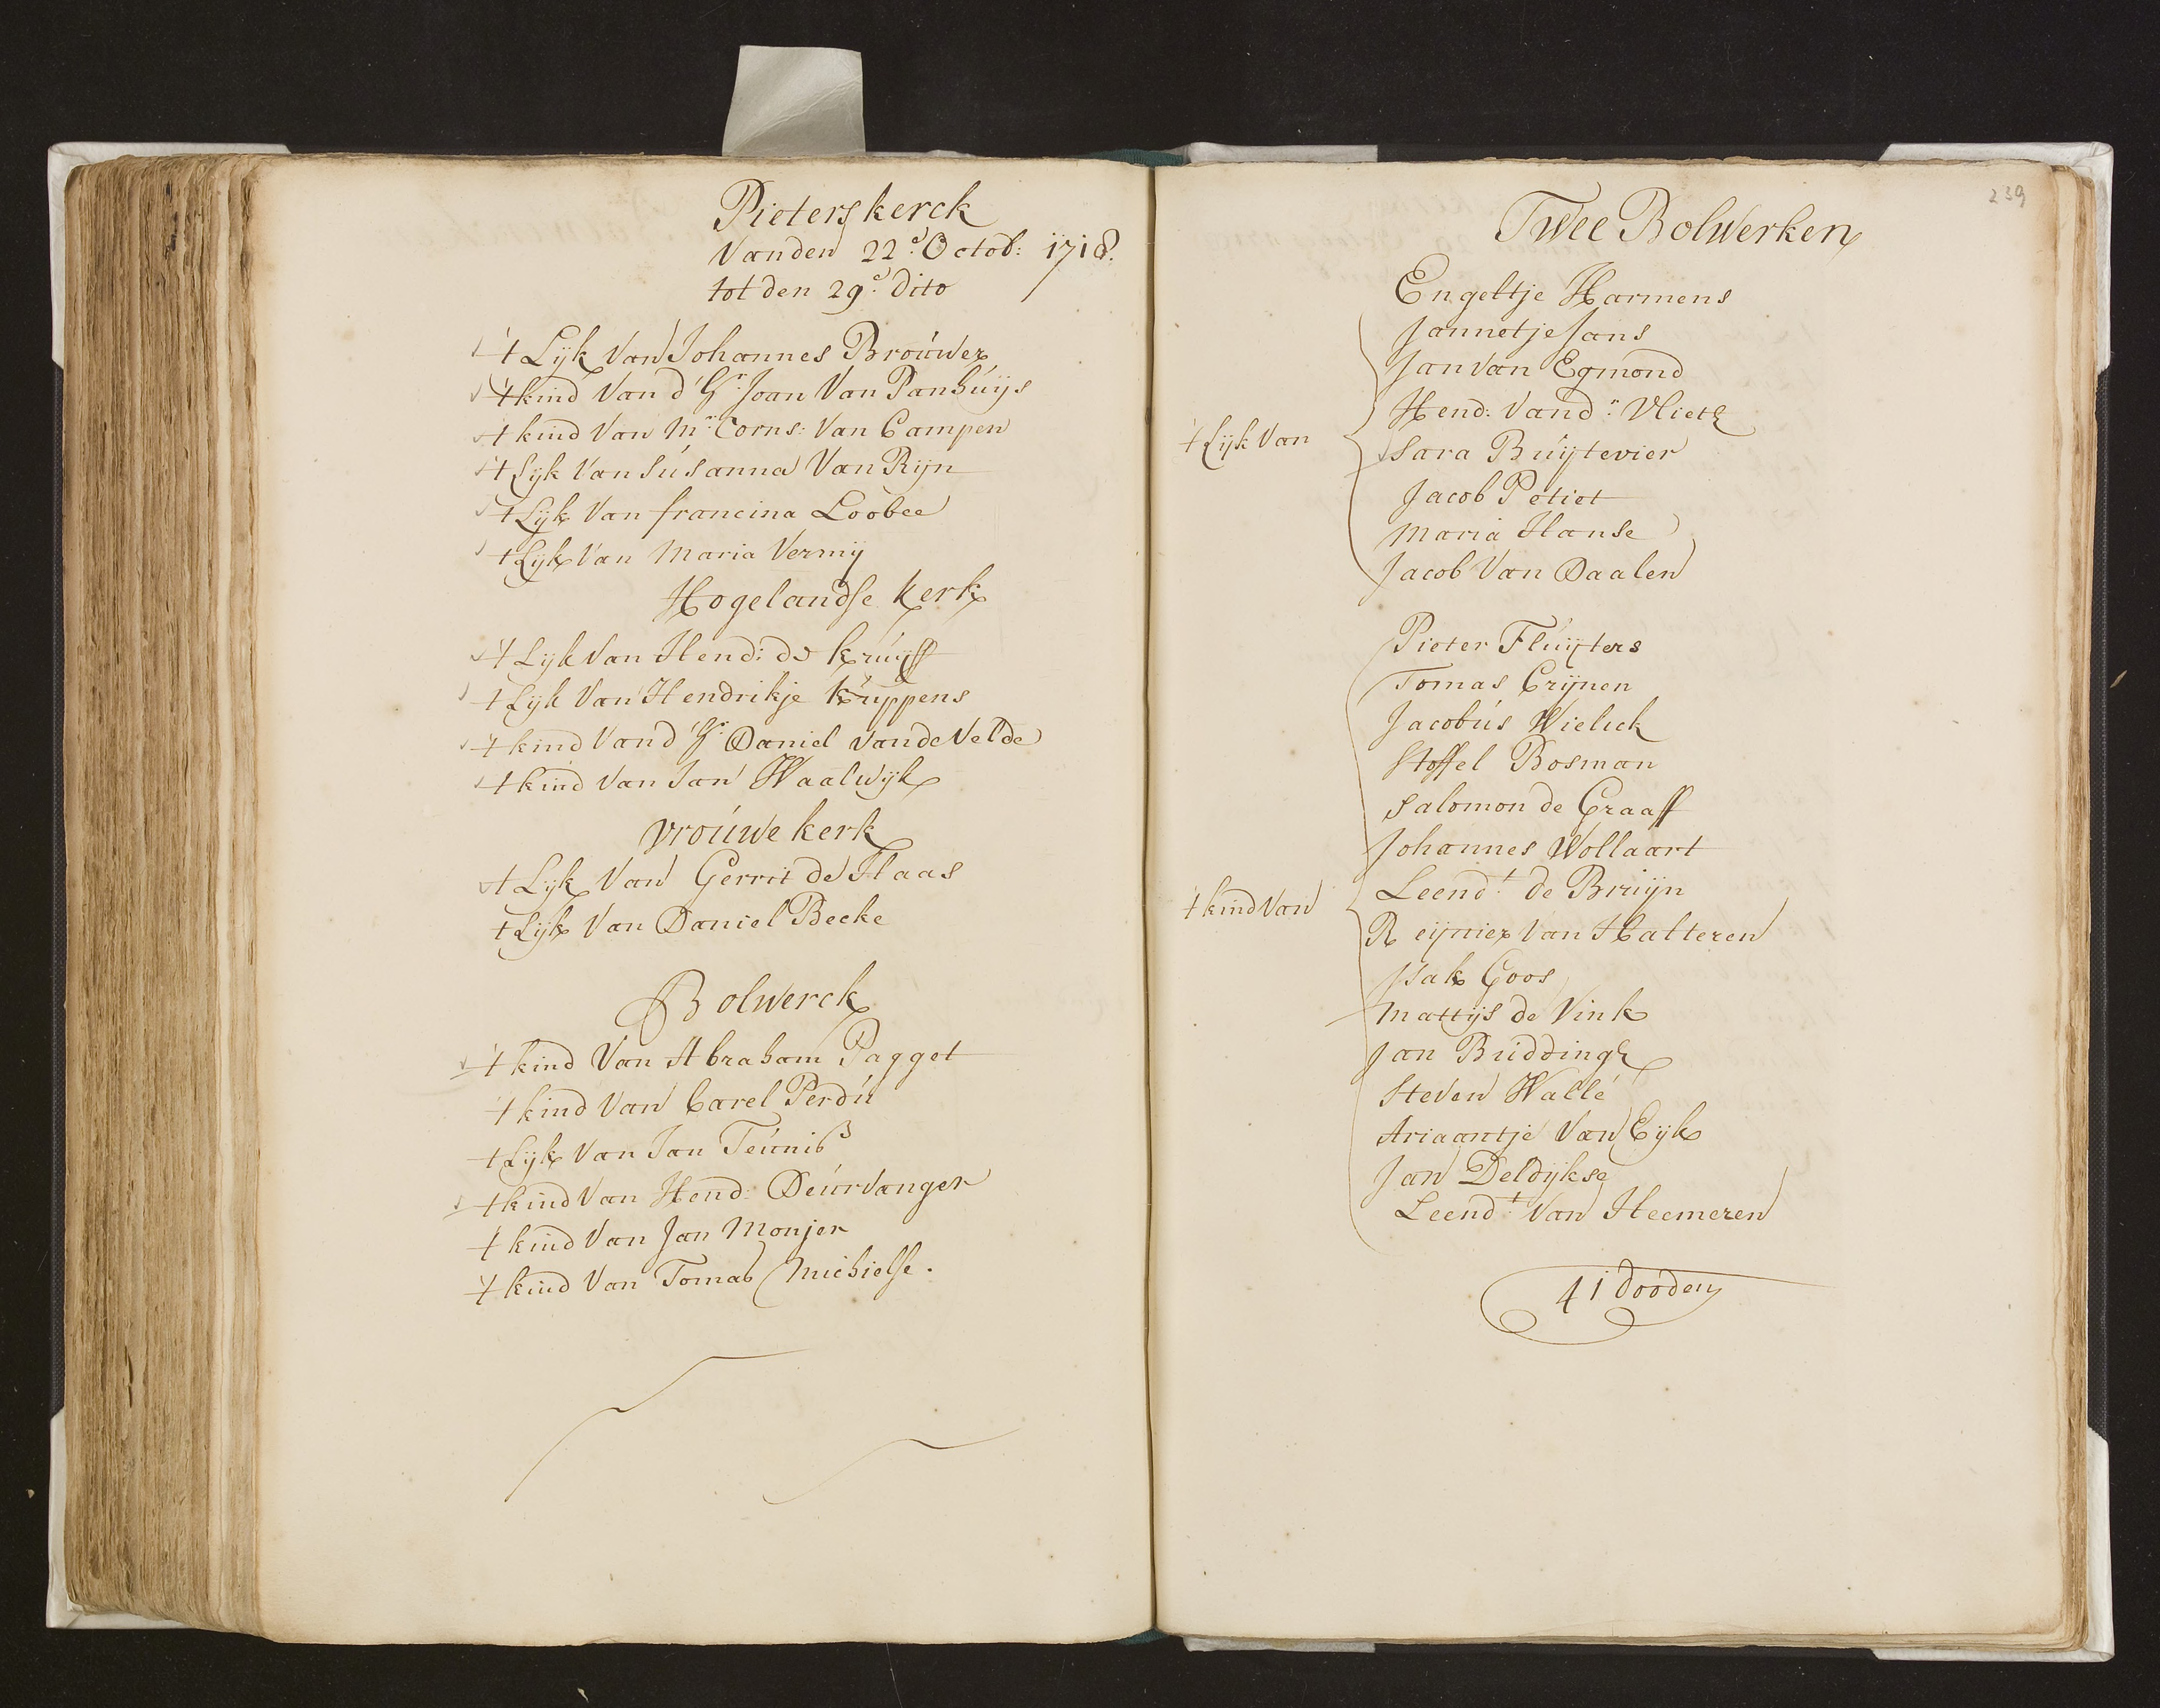 Pieterskerck
Vanden 22.e Octob: 1718.
tot den 29.e dito
't Lijk Van Johannes Brouwer
't kind Van d' Hr. Joan Van Panhuijs
't kind Van Mr. Corns: Van Campen
't Lijk Van Susanna Van Rijn
't Lijk Van francina Loobee
't Lijk Van Maria Vermij
Hogelandse kerk
't Lijk Van Hend: de kruijff
't Lijk Van Hendrikje kuppens
't kind Van d' Hr. Daniel vande Velde
't kind Van Jan Waalwijk
vrouwe kerk
't Lijk Van Gerrit de Haas
't Lijk Van Daniel Becke
Bolwerck
't kind Van Abraham Pagget
't kind Van Carel Perdu
't Lijk Van Jan Teuniss
't kind Van Hend: Deurvanger
't kind Van Jan Monjer
't kind Van Tomas Michielse.
239
Twee Bolwerken
Engeltje Harmens
Jannetje Jans
Jan van Egmond
Hend: Vand.r Vliet
't Lijk Van
Sara Buijtevier
Jacob Petiet
Maria Hanse
Jacob Van Daalen
Pieter Fluijters
Tomas Crijnen
Jacobus Wielick
Stoffel Bosman
Salomon de Graaff
Johannes Wollaart
't kind Van
Leend.t de Bruijn
Reijnier Van Halteren
Isak Goos
Mattijs de Vink
Jan Budding
Steven Wallé
Ariaantje Van Eijk
Jan Deldijkse
Leend.t Van Heemeren
41 dooden